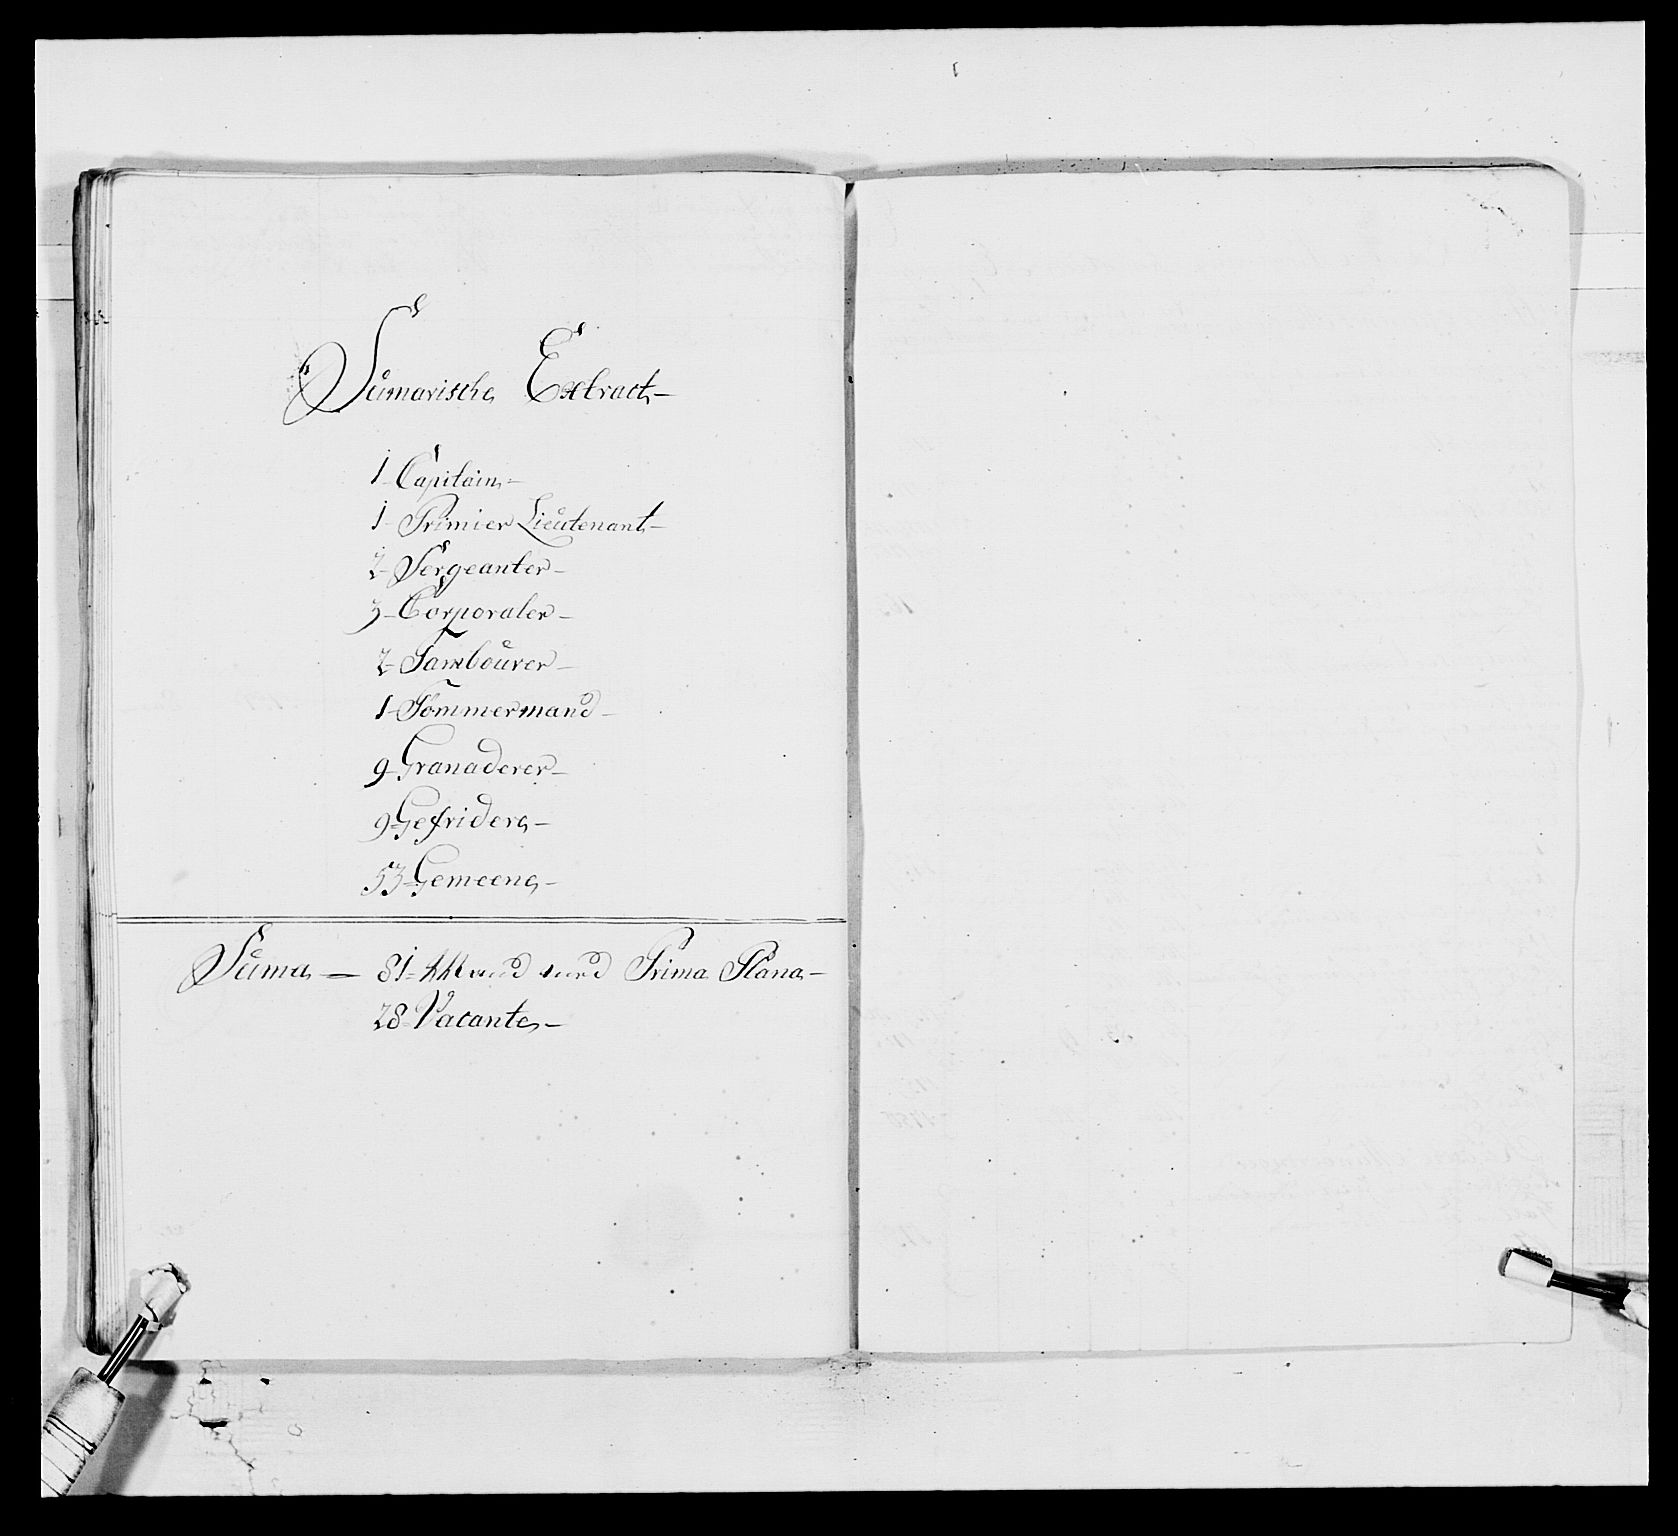 Sumarische Extract
1 Capitain
1 Primier Lieutenant
2 Sergeanter
3 Corporaler
2 Tambourer
1 Tömmermand
9 Granaderer
9 Gefridere
53 Gemeene
Suma 81 Mand med Prima Plana
28 Vacante